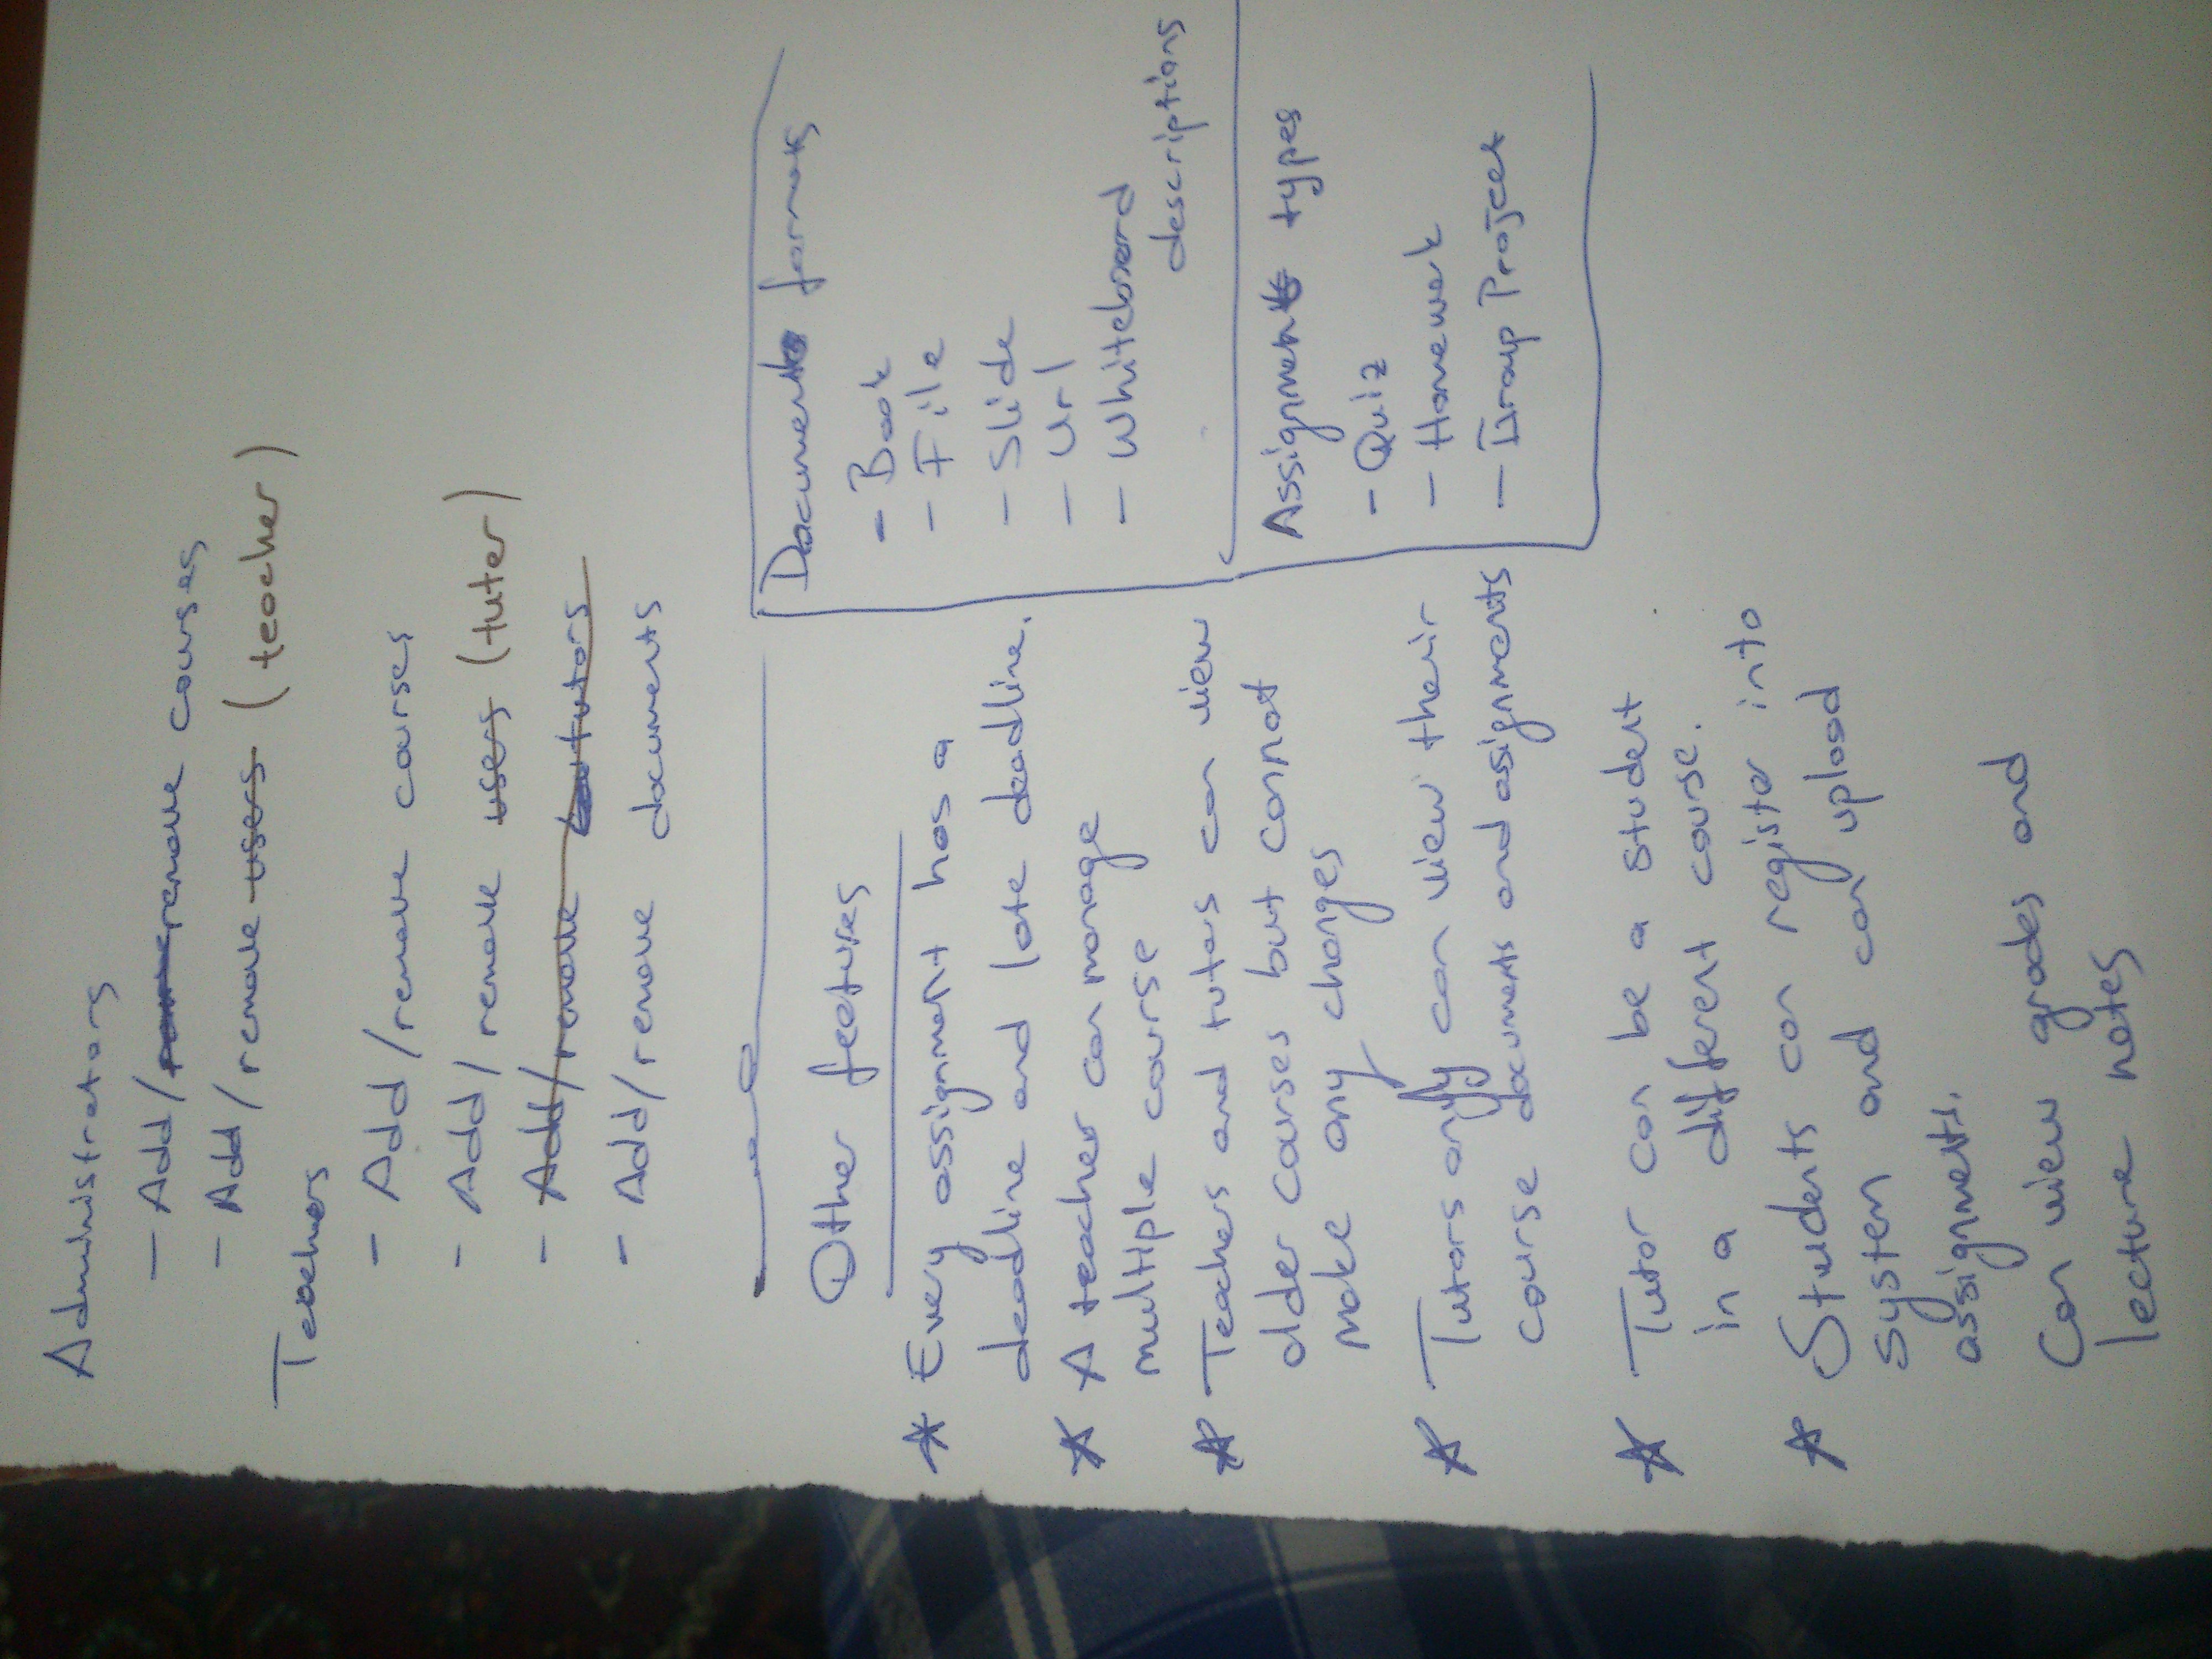 Administrators
- Add/remove courses
- Add/remove users (teacher)
Teachers
- Add/remove courses
- Add/remove users (tuter)
- Add/remove tutors
- Add/remove documents
Other features
* Every assignment has a
deadline and late deadline.
* A teacher can manage
multiple course
* Teachers and tutors can view
older courses but cannot
make any changes
* Tutors only can view their
course documents and assignments
* Tutor can be a student
in a different course.
* Students can register into
system and can upload
assignments.
Can view grades and
lecture notes
Document formats
- Book
- File
- Slide
- Url
- Whiteboard
descriptions
Assignment types
- Quiz
- Homework
- Group Project